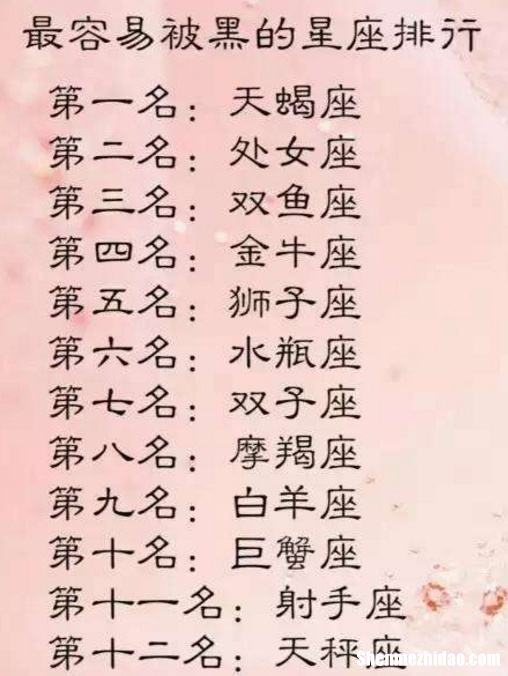 最容易被黑的星座排行
第一名：天蝎座
第二名：处女座
第三名：双鱼座
第四名：金牛座
第五名：狮子座
第六名：水瓶座
第七名：双子座
第八名：摩羯座
第九名：白羊座
第十名：巨蟹座
第十一名：射手座
第十二名：天秤座